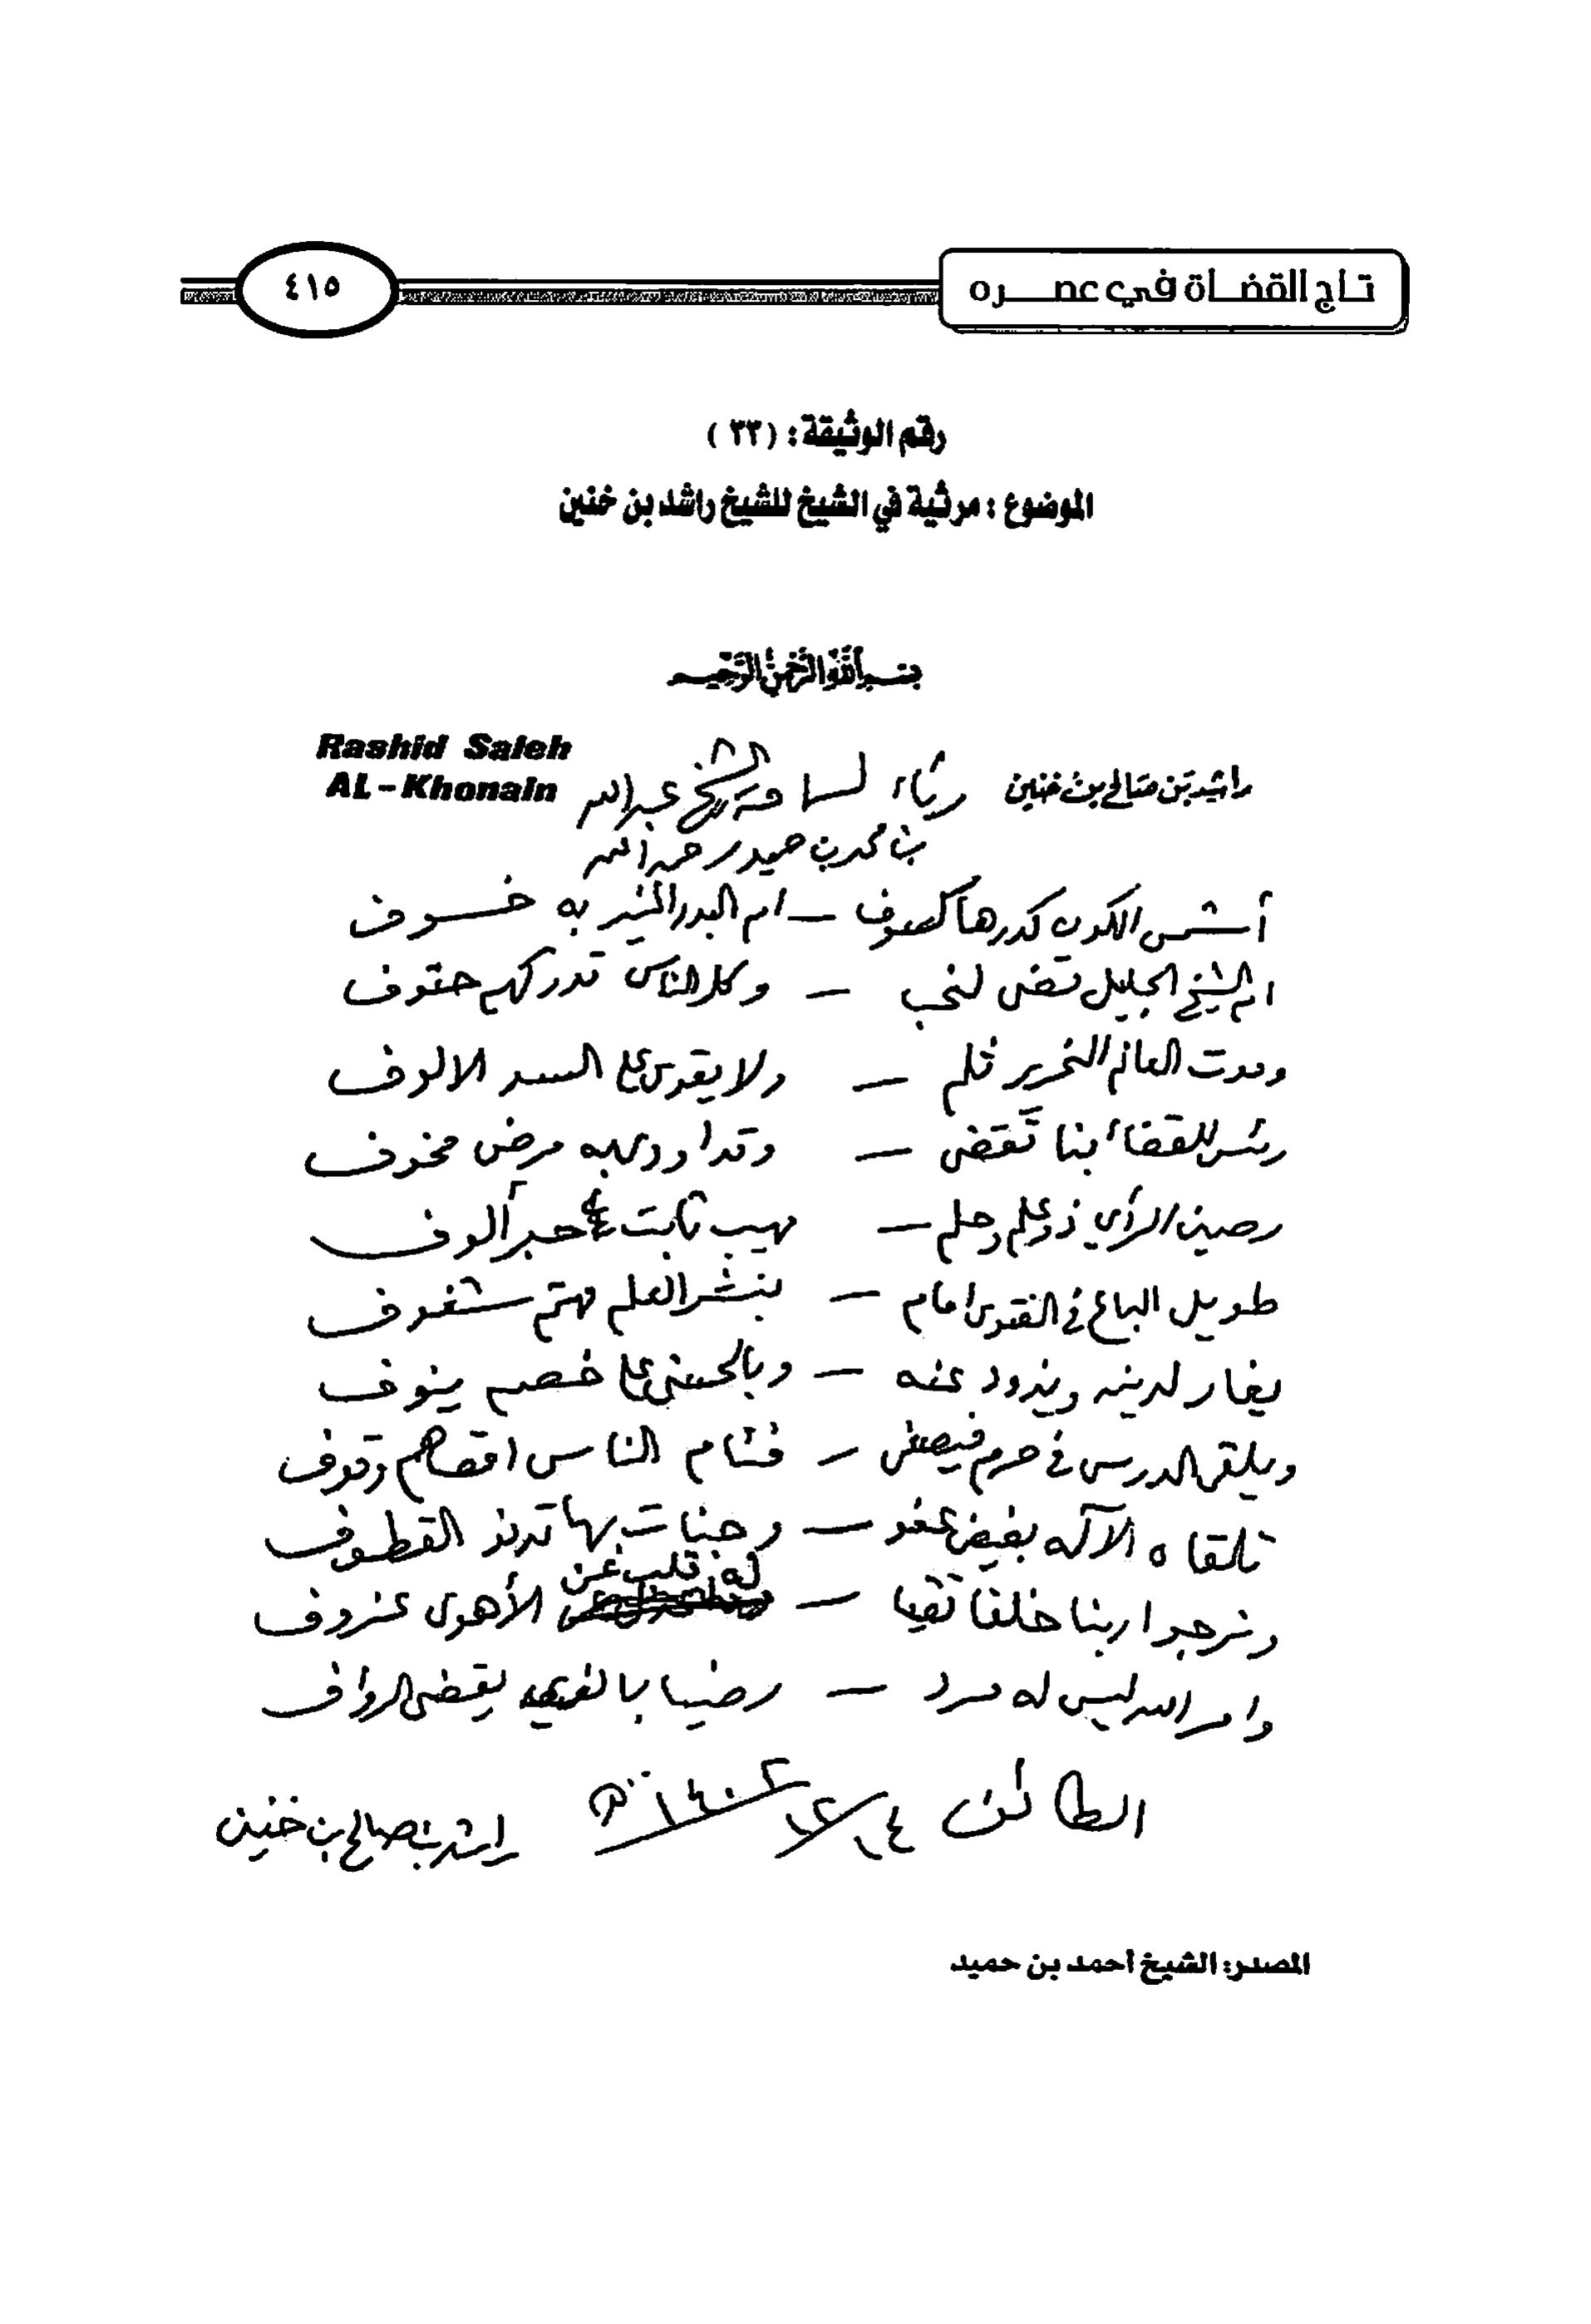 تاج القضاة في عصره
٤١٥
رقم الوثيقة: (٣٣)
الموضوع: مرثية في الشيخ للشيخ راشد بن خنين
بسم الله الرحمن الرحيم
Rashid Saleh
AL-Khonain
راشد بن صالح بن خنين
رثاء لسماحة الشيخ عبد الله
بن محمد بن حميد رحمه الله
أشمس الكون كدرها كسوف — ام البدر المنير به خسوف
ام الشيخ الجليل قضى لنحب — وكل الناس تدركهم حتوف
وموت العالم النحرير ثلم — ولا يقوى على السد الالوف
رئيس للقضاء بنا تقضى — وقد اودى به مرض مخوف
رصين الرأي ذو علم وحلم — مهيب ثابت حبر ألوف
طويل الباع في الفتوى امام — بنشر العلم مهتم شغوف
يغار لدينه ويذود عنه — وبالحسنى على خصم ينوف
ويلقي الدرس في حرم فيصغي — فئام الناس اقصاهم وقوف
تلقاه الآله بفيض عفو — وجنات بها تدنو القطوف
ونرجوا ربنا خلفا تقيا — له قلب عن الأهوى عزوف
وامر الله ليس له مرد — رضينا بالذي يقضي الرؤف
الطائف ١٤/١٢/١٤٠٢هـ
راشد بن صالح بن خنين
المصدر: الشيخ أحمد بن حميد